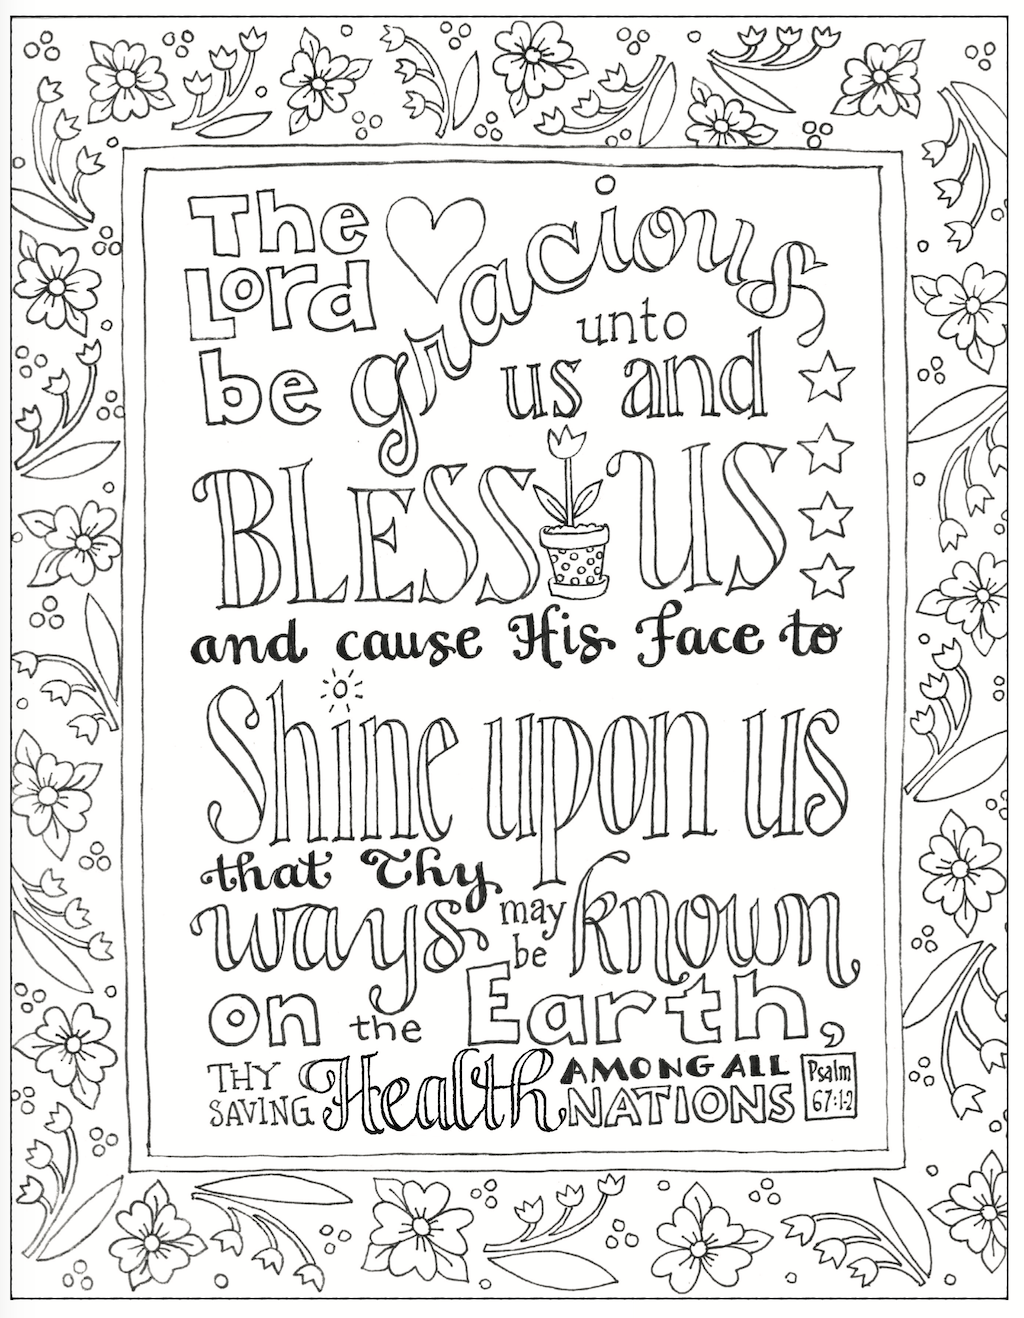 The
Lord
be gracious
unto
us and
BLESS US
and cause His Face to
Shine upon us
that Thy
ways may be known
on the Earth,
THY SAVING Health AMONG ALL NATIONS
Psalm 67:1-2